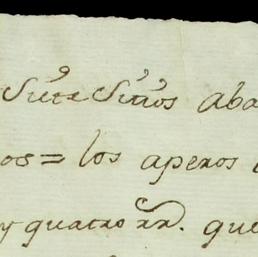 Siete Sitios aba
os = los aperos
y quatro rr. que